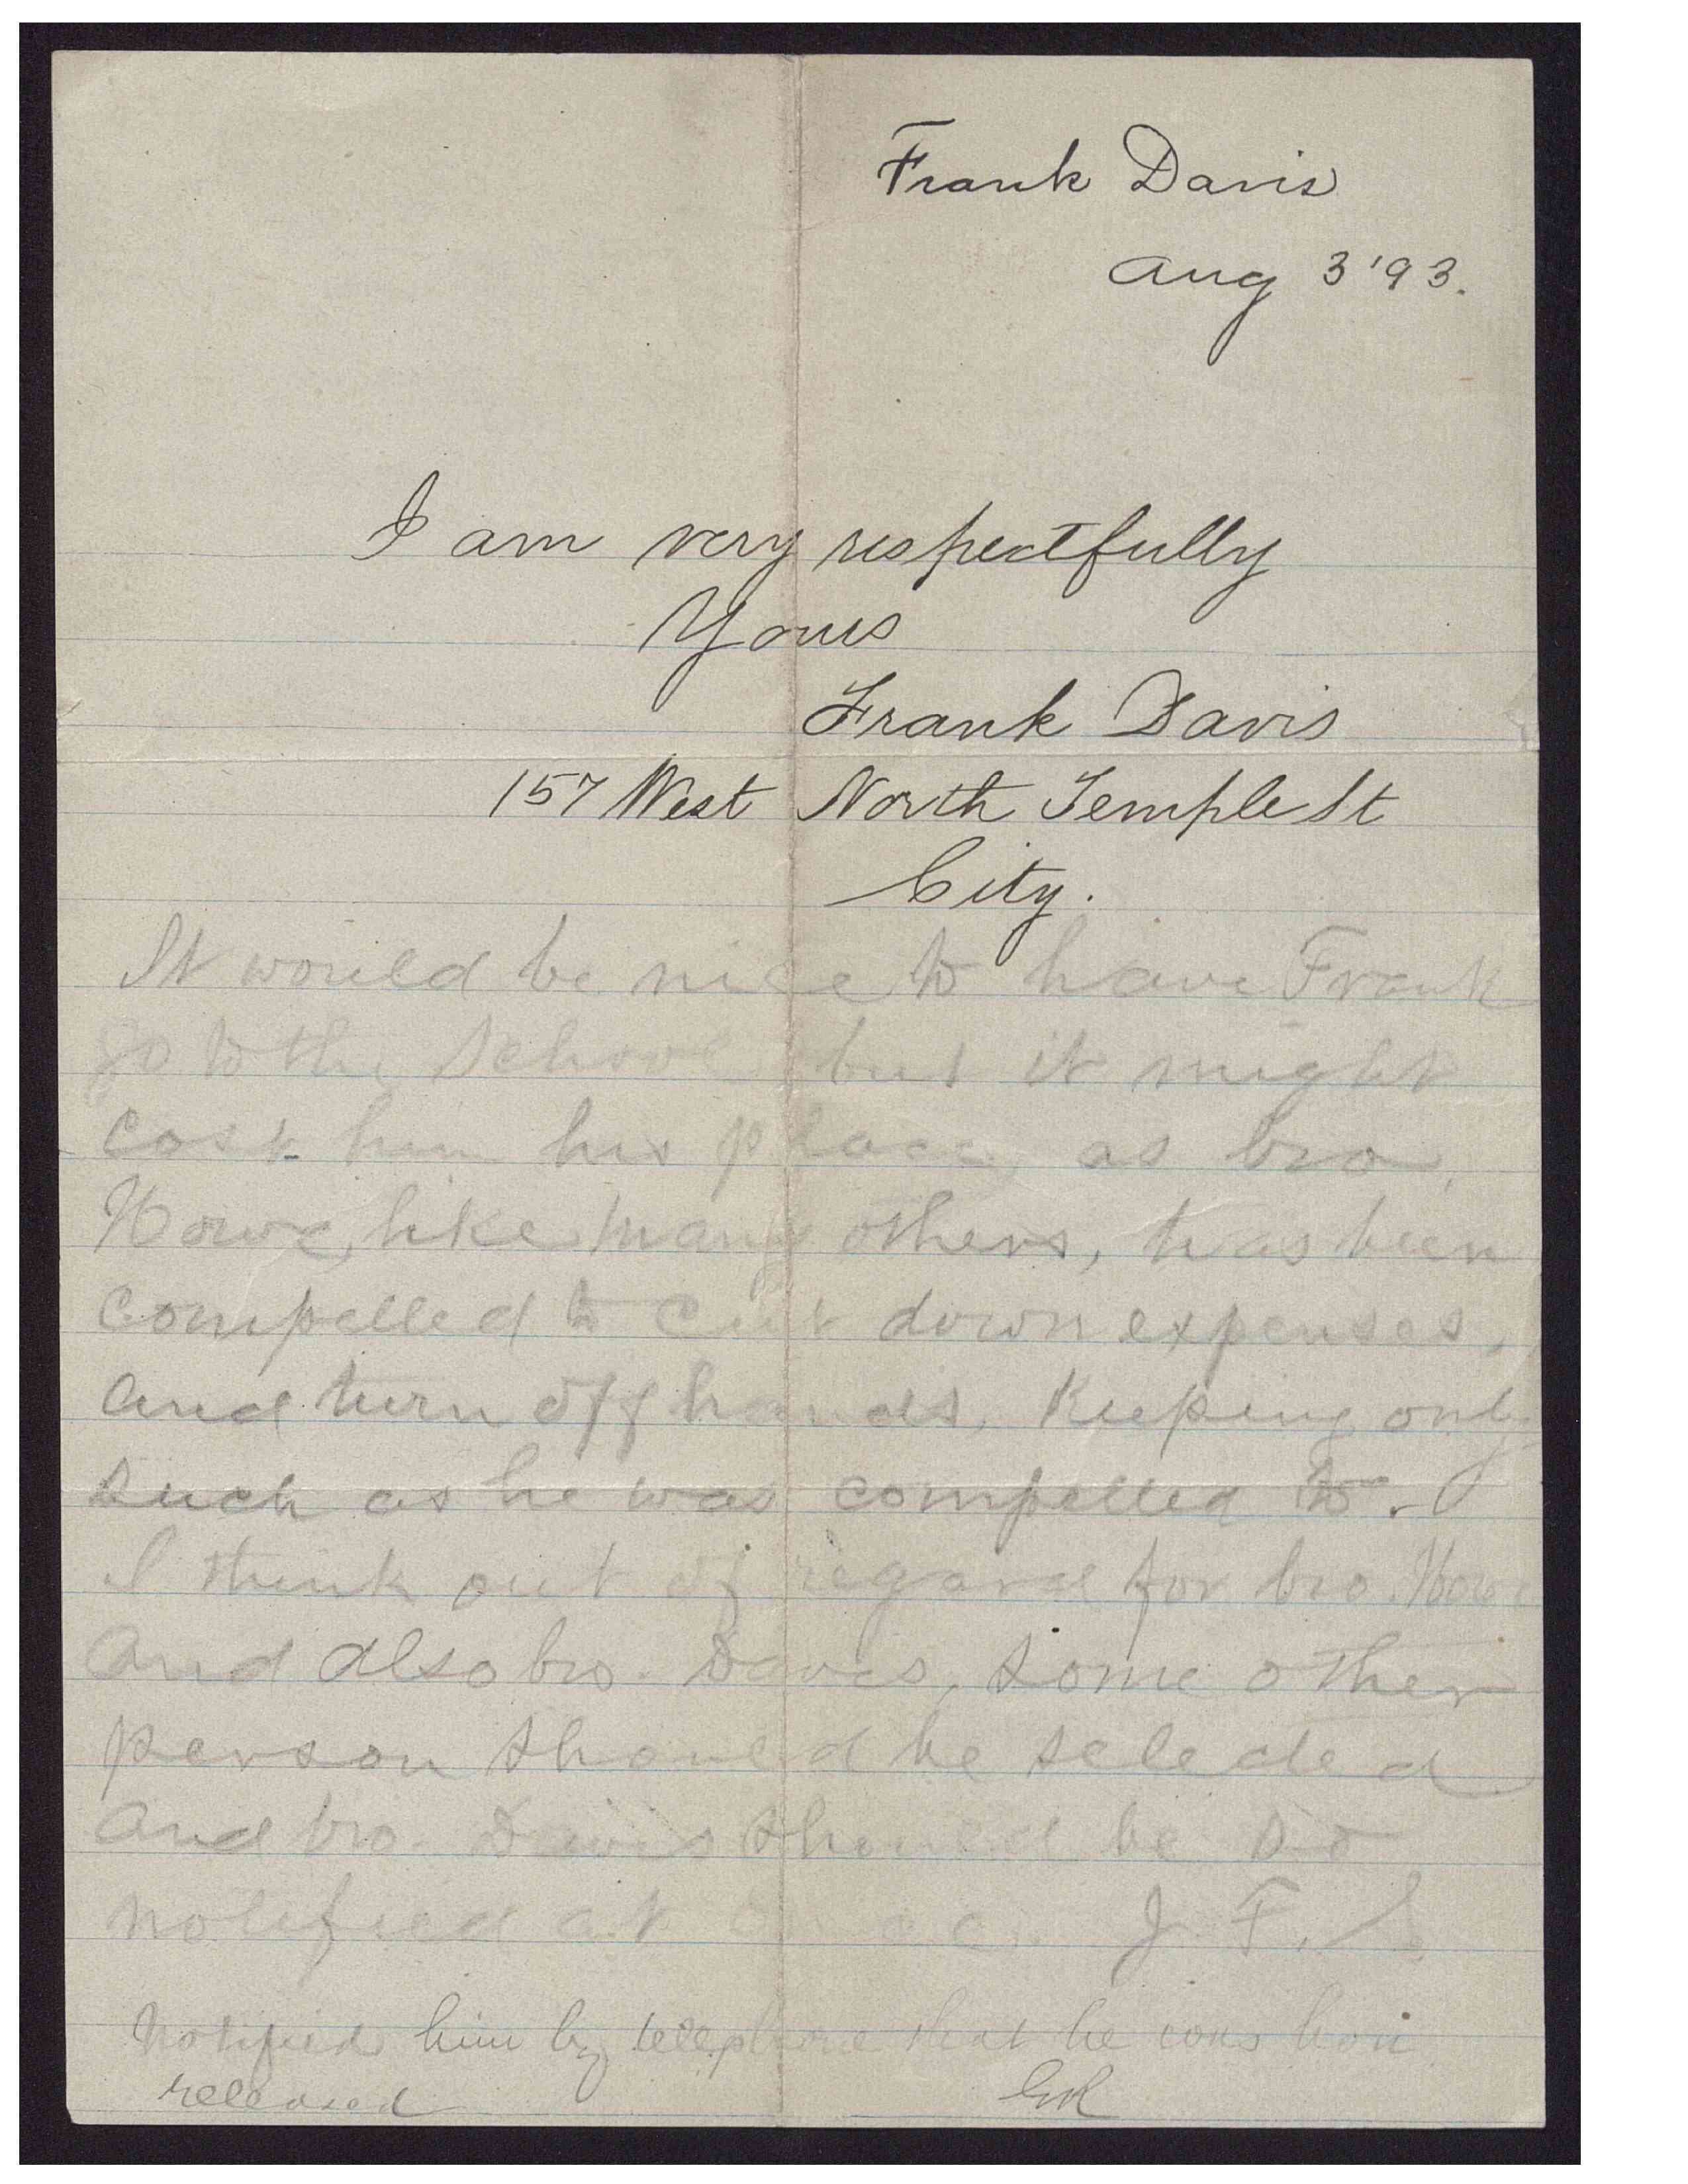 Frank Davis
Aug 3 '93.
I am very respectfully
Yours
Frank Davis
157 West North Temple St
City.
It would be nice to have Frank
go to the School but it might
cost him his place, as bro.
Howe, like many others, has been
compelled to cut down expenses,
and turn off hands, keeping only
such as he was compelled to.
I think out of regard for bro. Howe
and also bro. Davis, some other
person should be selected
and bro. Davis should be so
notified at once. J. F. S.
Notified him by telephone that he was hon
released GR